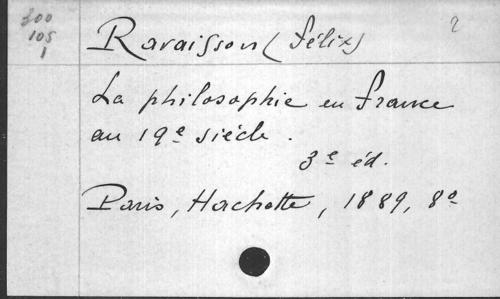 300
105
1
Ravaisson (Félix)
2
La philosophie en France
au 19e siécle.
3e éd.
Paris, Hachette, 1889, 8o